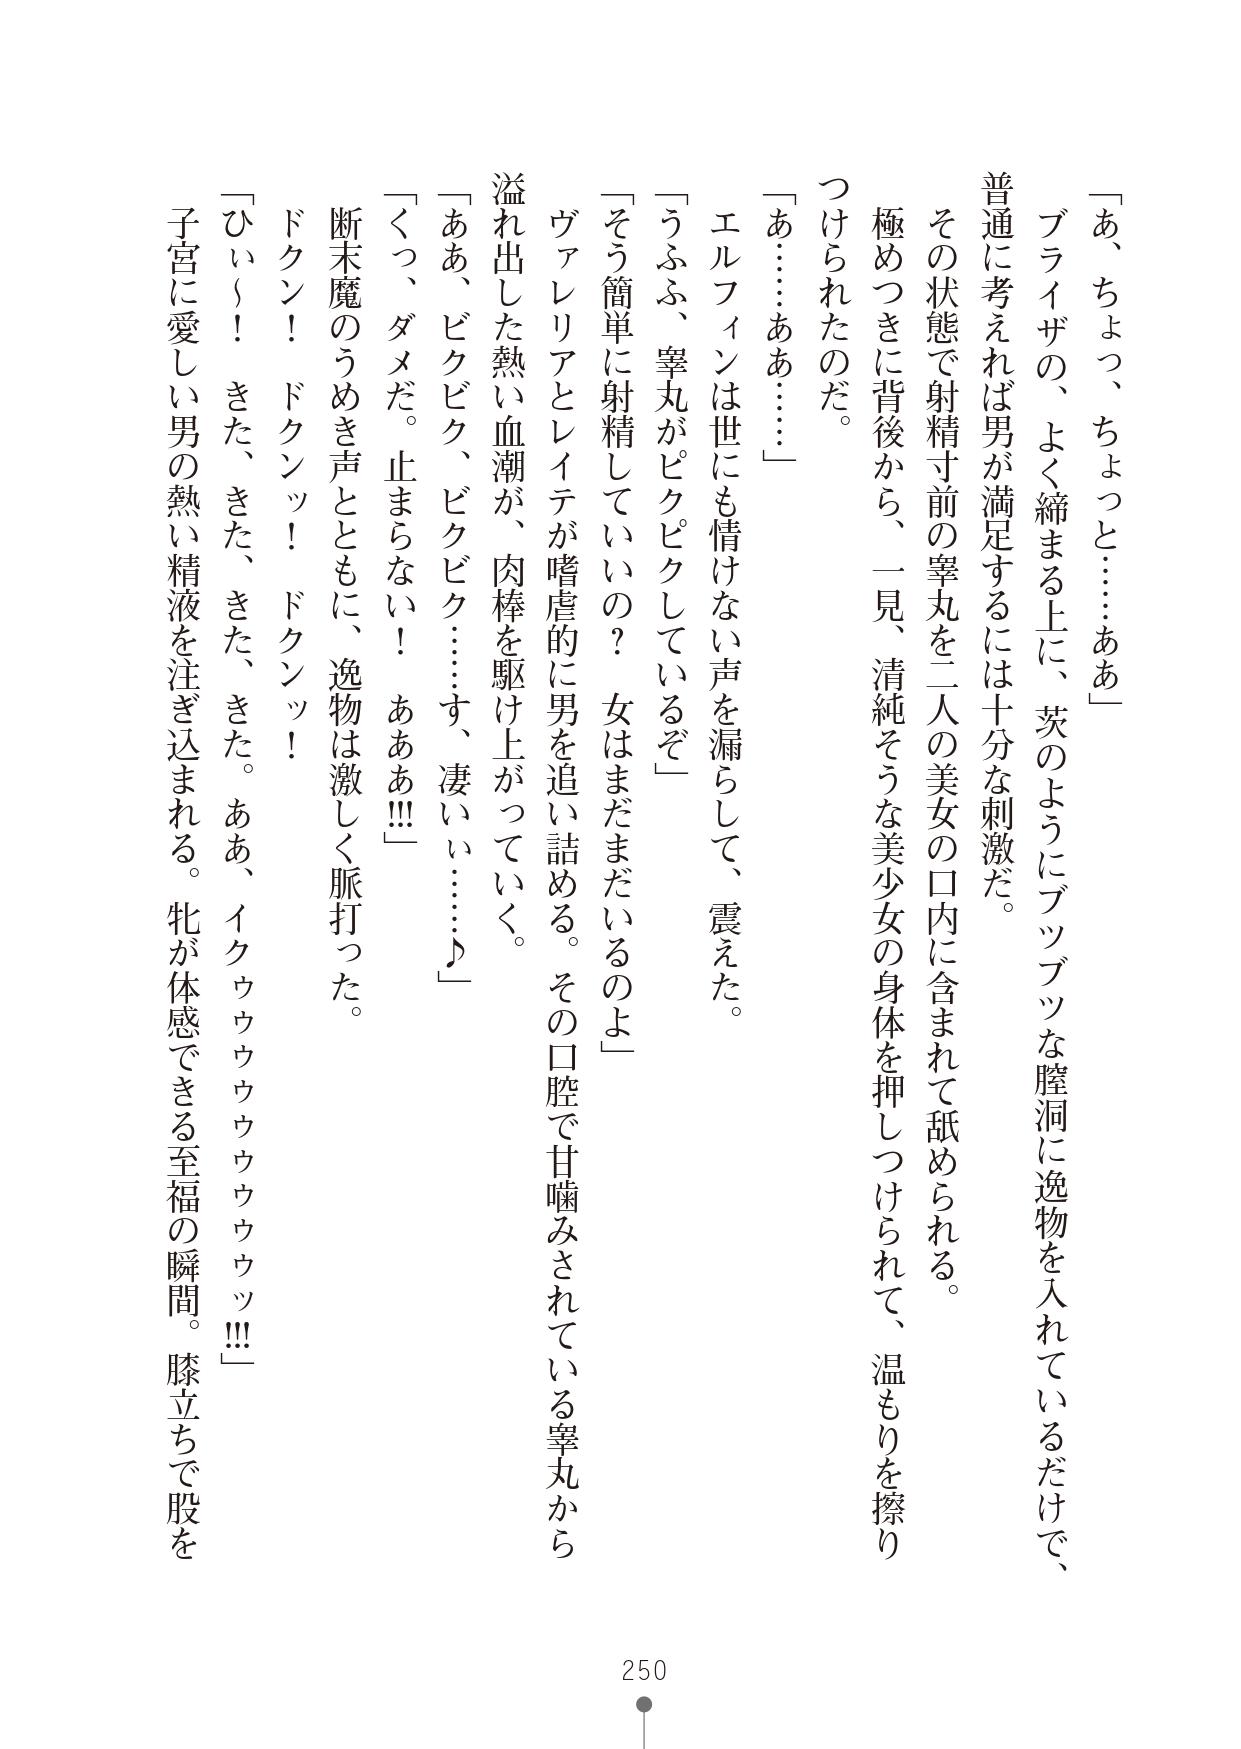 「あ、ちょっ、ちょっと……ああ」
　ブライザの、よく締まる上に、茨のようにブツブツな膣洞に逸物を入れているだけで、
普通に考えれば男が満足するには十分な刺激だ。
　その状態で射精寸前の睾丸を二人の美女の口内に含まれて舐められる。
　極めつきに背後から、一見、清純そうな美少女の身体を押しつけられて、温もりを擦り
つけられたのだ。
「あ……ああ……」
　エルフィンは世にも情けない声を漏らして、震えた。
「うふふ、睾丸がピクピクしているぞ」
「そう簡単に射精していいの？　女はまだまだいるのよ」
　ヴァレリアとレイテが嗜虐的に男を追い詰める。その口腔で甘噛みされている睾丸から
溢れ出した熱い血潮が、肉棒を駆け上がっていく。
「ああ、ビクビク、ビクビク……す、凄いぃ……♪」
「くっ、ダメだ。止まらない！　あああ!!!」
　断末魔のうめき声とともに、逸物は激しく脈打った。
　ドクン！　ドクンッ！　ドクンッ！
「ひぃ～！　きた、きた、きた、きた。ああ、イクゥゥゥゥゥゥゥゥゥッ!!!」
　子宮に愛しい男の熱い精液を注ぎ込まれる。牝が体感できる至福の瞬間。膝立ちで股を
250